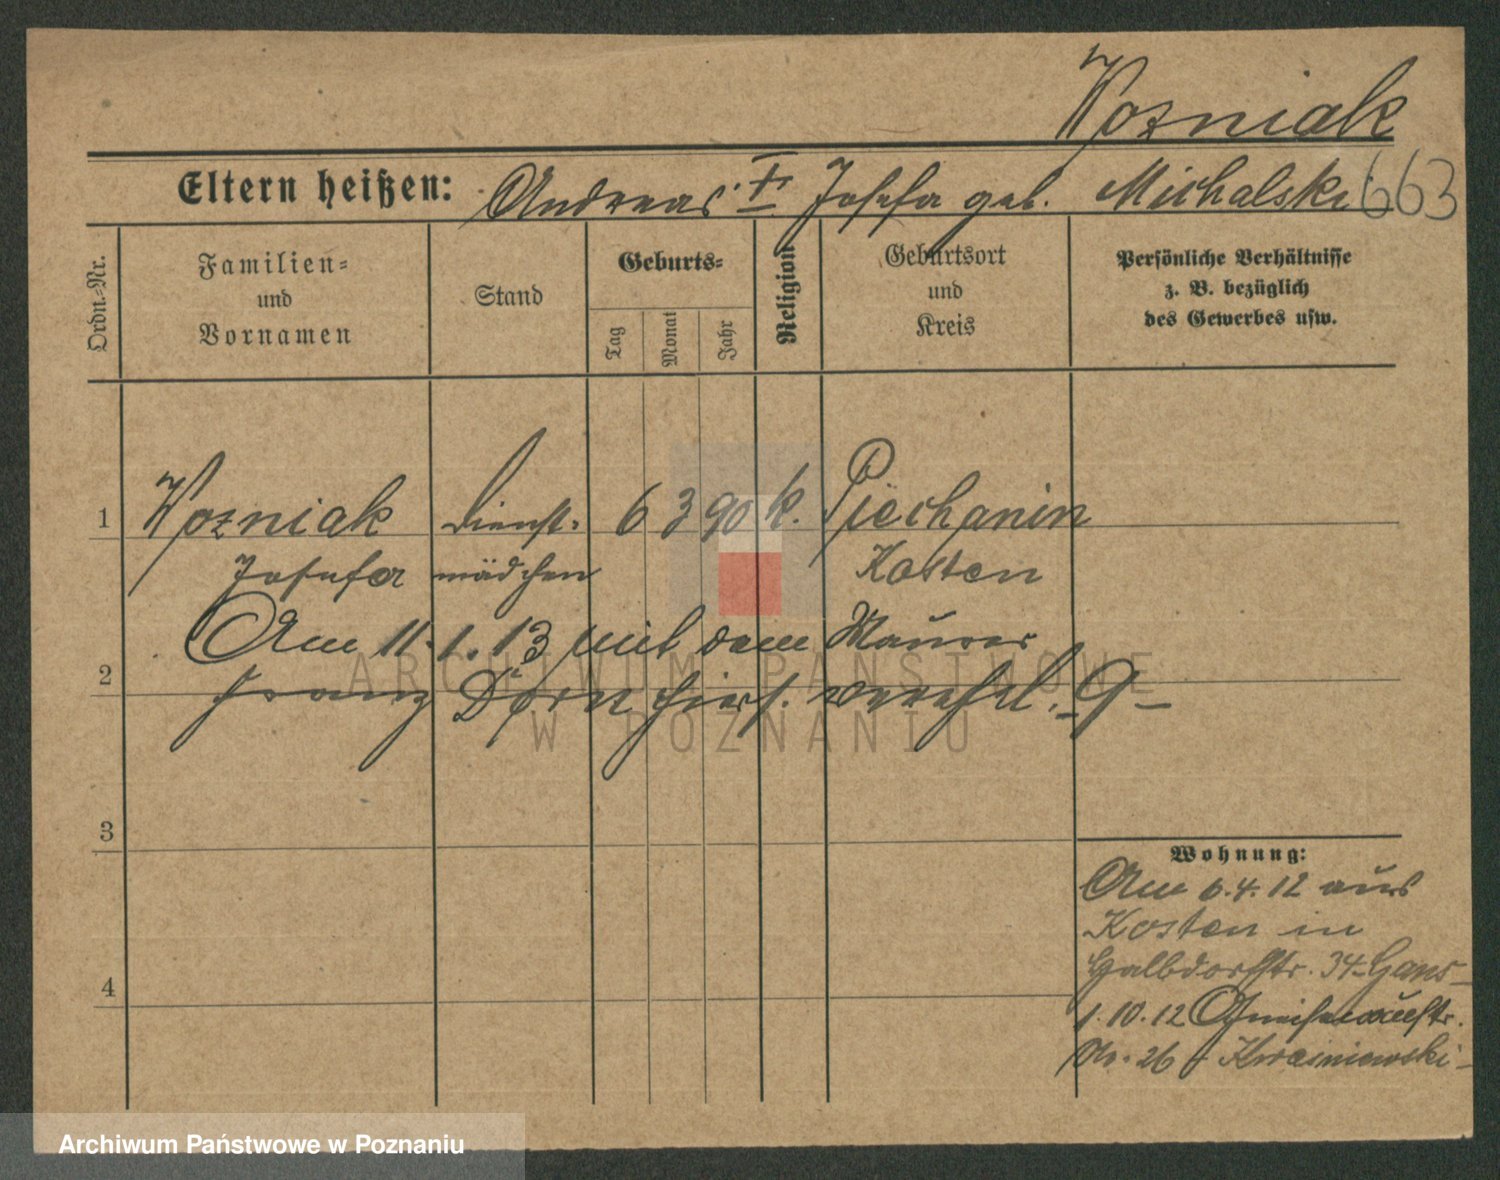 Wozniak
Eltern heißen: Andreas † Josefa geb. Michalski 663
Ordn.-Nr.
Familien-
und
Vornamen
Stand
Geburts-
Tag
Monat
Jahr
Religion
Geburtsort
und
Kreis
Persönliche Verhältnisse
z. B. bezüglich
des Gewerbes usw.
1 Wozniak Dienst- 6 3 90 k. Piechanin
Josefa mädchen Kosten
Am 11. 1. 13 mit dem Maurer
2
Franz Dorn hiers. verehel. - G -
3
4
Wohnung:
Am 6.4.12 aus
Kosten in
Halbdorfstr. 34 - Gans -
1.10.12
Nr. 26
ARCHIWUM PAŃSTWOWE
W POZNANIU
Archiwum Państwowe w Poznaniu